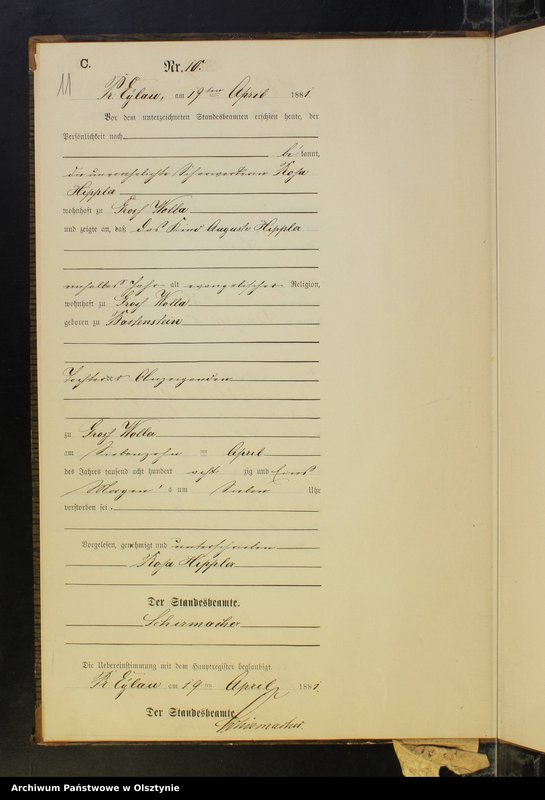 11
C.
Nr. 10.
Pr. Eylau, am 19ten April 1881
Vor dem unterzeichneten Standesbeamten erschien heute, der
Persönlichkeit nach
be kannt,
die unverehelichte Rosa
Hippler
wohnhaft zu Groß Wolla
und zeigte an, daß das Kind Auguste Hippler
einhalbes Jahr alt evangelischer Religion,
wohnhaft zu Groß Wolla
geboren zu Bartenstein
Tochter Anzeigenden
zu Groß Wolla
am Siebenzehn ten April
des Jahres tausend acht hundert acht zig und Eins
Morgen s um Sieben Uhr
verstorben sei.
Vorgelesen, genehmigt und unterschrieben
Rosa Hippler
Der Standesbeamte.
Schirmacher
Die Uebereinstimmung mit dem Hauptregister beglaubigt.
Pr. Eylau am 19ten April 1881.
Der Standesbeamte
Schirmacher.
Archiwum Państwowe w Olsztynie